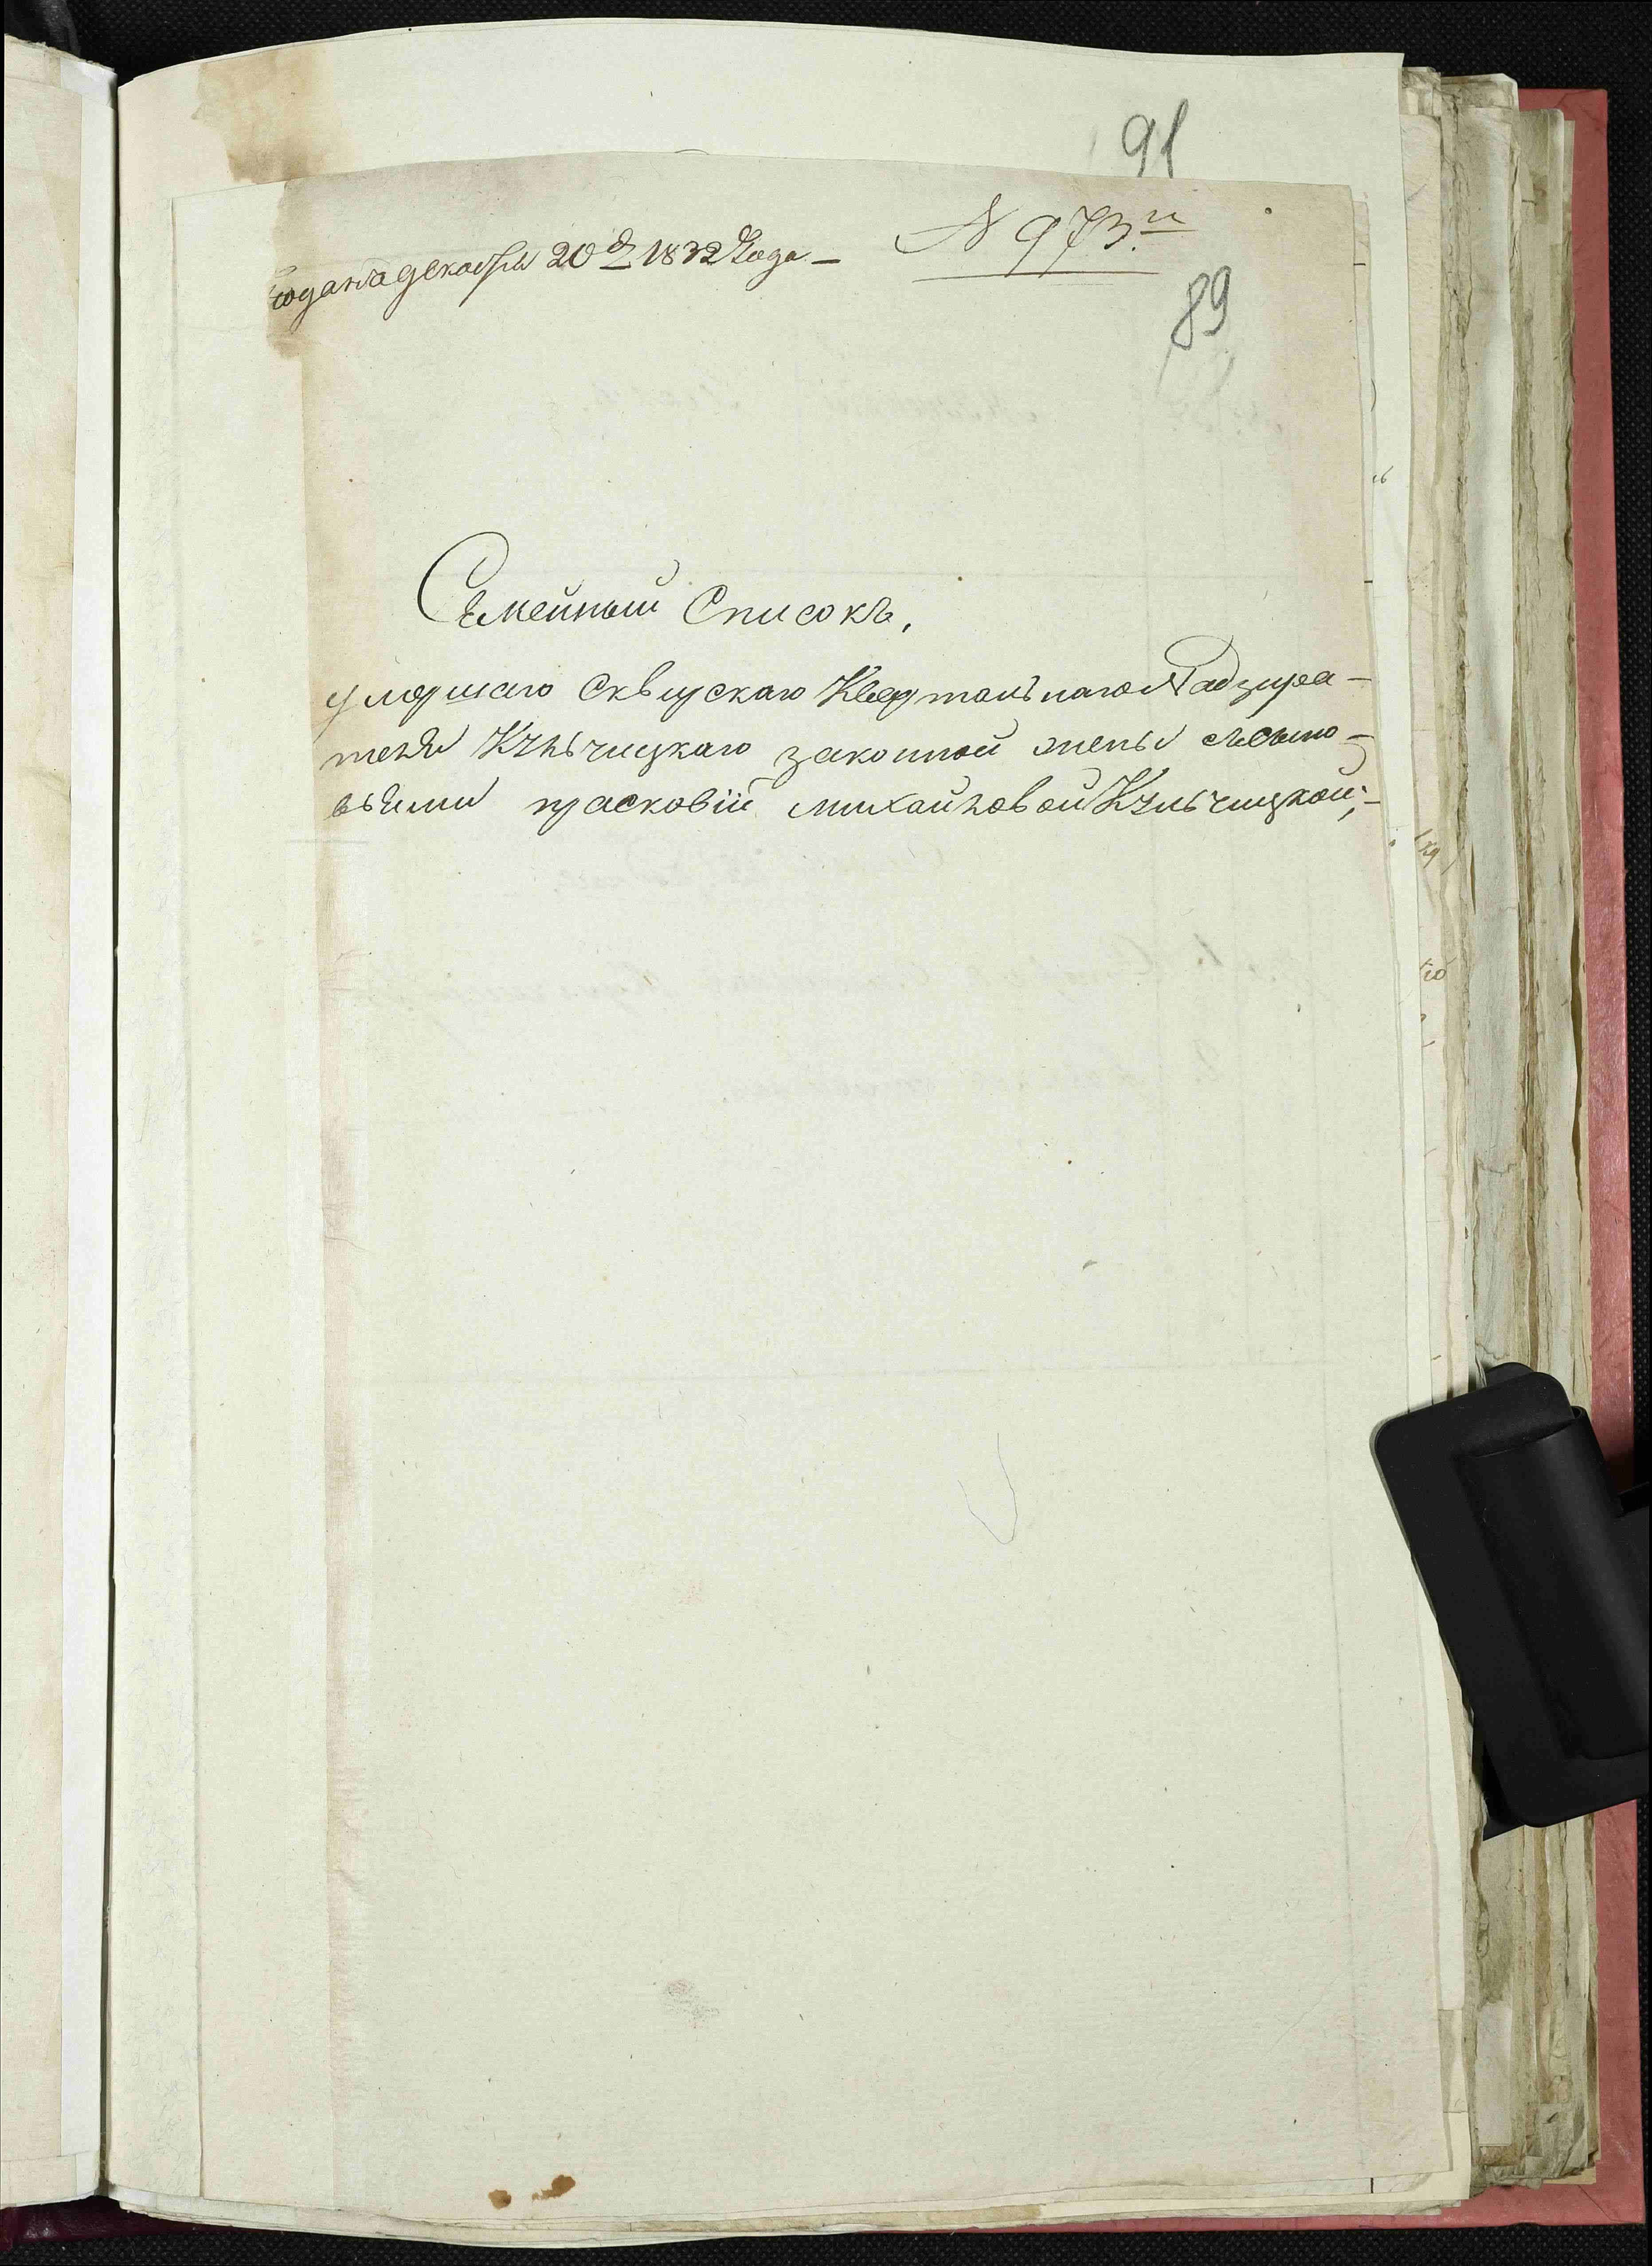 91
подана декабря 20 д 1832 Года –
N 973.го
89
Семейный Списокъ,
умершаго Сквирскаго Квартальнаго Надзира–
теля Кульчицкаго законной жены съсыно–
вьями прасковіи михайловой Кульчицкой;–